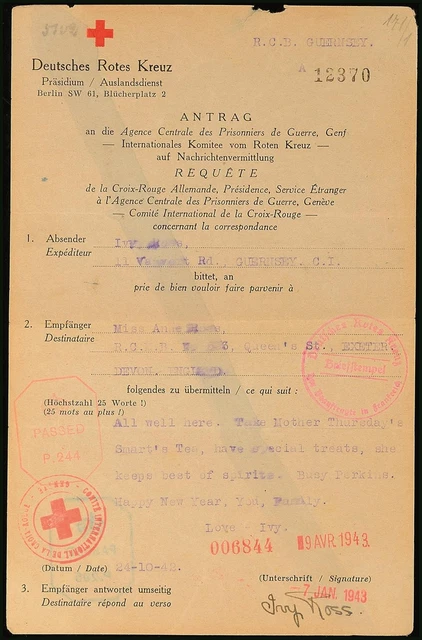 R.C.B. GUERNSEY.
Deutsches Rotes Kreuz
Präsidium / Auslandsdienst
Berlin SW 61, Blücherplatz 2
A 12370
ANTRAG
an die Agence Centrale des Prisonniers de Guerre, Genf
— Internationales Komitee vom Roten Kreuz —
auf Nachrichtenvermittlung
REQUÊTE
de la Croix-Rouge Allemande, Présidence, Service Étranger
à l'Agence Centrale des Prisonniers de Guerre, Genève
— Comité International de la Croix-Rouge —
concernant la correspondance
1. Absender Ivy
Expéditeur 11 Rd., GUERNSEY. C.I.
bittet, an
prie de bien vouloir faire parvenir à
2. Empfänger Miss Anne
Destinataire R.C.M.B. 3, Queen's St., EXETER
DEVON, ENGLAND.
folgendes zu übermitteln / ce qui suit :
(Höchstzahl 25 Worte !)
(25 mots au plus !)
All well here. Take Mother Thursday's
Smart's Tea, have special treats, she
keeps best of spirits. Busy Perkins.
Happy New Year, You, Family.
Love - Ivy.
PASSED
P.244
006844
9 AVR. 1943
(Datum / Date) 24-10-42.
(Unterschrift / Signature)
-7 JAN. 1943
3. Empfänger antwortet umseitig
Destinataire répond au verso
Ivy Ross.